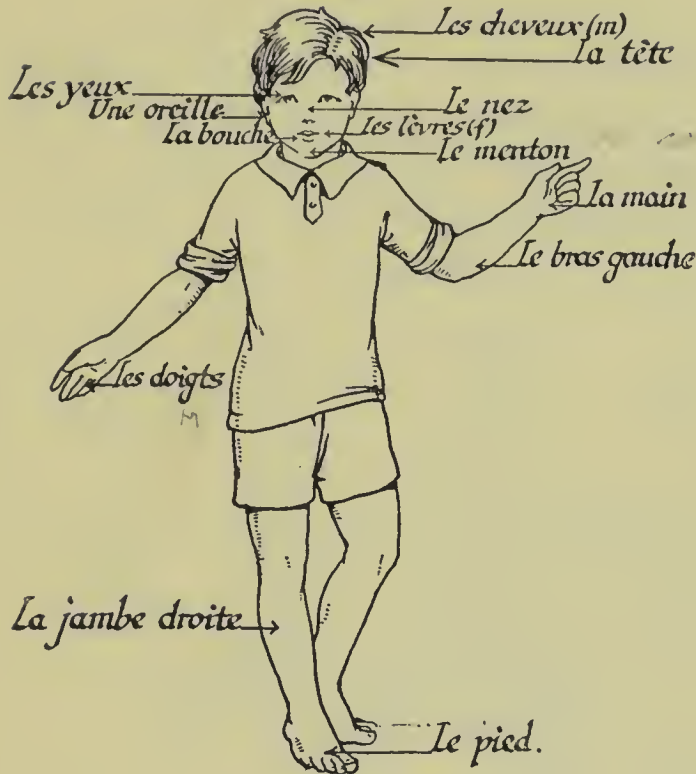 Les cheveux (m)
La tête
Les yeux
Une oreille
Le nez
La bouche
Les lèvres (f)
Le menton
La main
Le bras gauche
Les doigts
M
La jambe droite
Le pied.